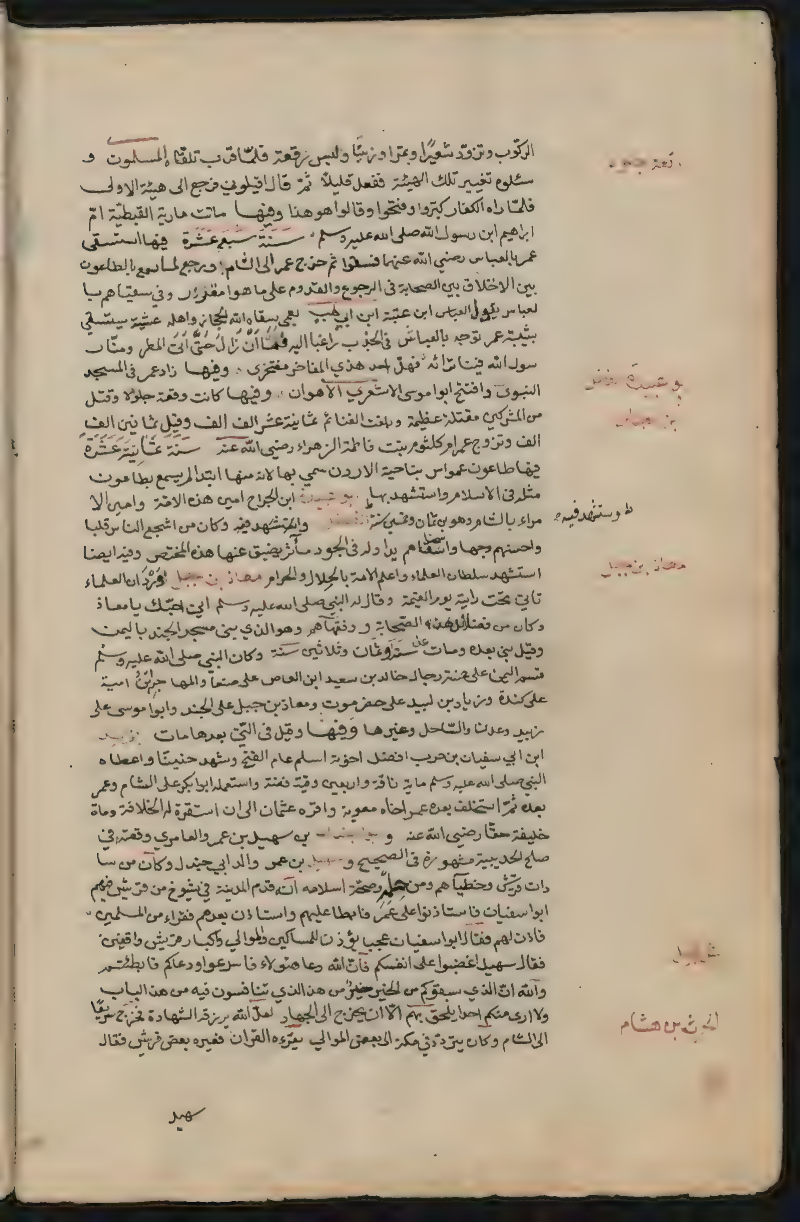 الركوب وتزود شعيرا وتمرا وزيتا ولبس مرقعة فلما قرب تلقاه المسلمون و
سئلوه تغيير تلك الهيئة ففعل قليلا ثم قال اقيلوني فرجع الى هيئة الاولى
فلما راه الكفار كبروا وفتحوا وقالوا هو هذا وفيها ماتت مارية القبطية ام
ابراهيم ابن رسول الله صلى الله عليه وسلم سنة سبع عشرة فيها استسقى
عمر بالعباس رضي الله عنهما فسقوا ثم خرج عمر الى الشام ورجع لما سمع بالطاعون
بين الاختلاف بين الصحابة في الرجوع والقدوم على ما هو مقرر وفي سقياهم با
لعباس يقول العباس ابن عتبة ابن ابي لهب بعمي سقى الله الحجاز واهله عشية يستسقي
بشيبته عمر توجه بالعباس في الجدب راغبا اليه فما ان زال حتى اتى المطر ومنا ر
سول الله فينا تراثه فهل احد هذي المفاخر مفتخر وفيها زاد عمر في المسجد
النبوي وافتتح ابو موسى الاشعري الاهواز وفيها كانت وقعة جلولا وقتل
من المشركين مقتلة عظيمة وبلغت الغنائم ثمانية عشر الف الف وقيل ثمانين الف
الف وتزوج عمر ام كلثوم بنت فاطمة الزهراء رضي الله عنه سنة ثمانية عشرة
فيها طاعون عمواس بناحية الاردن سمي بها لانه منها ابتدا لم يسمع بطاعون
مثله في الاسلام واستشهد بها ابو عبيدة ابن الجراح امين هذه الامة وامير الا
مراء بالشام وهو بن ثمان وخمسين سنة واستشهد فيه وكان من اشجع الناس قلبا
ط واستشهد فيه
واحسنهم وجها واسخاهم يدا وله في الجود مأثر يضيق عنها هذه المختصر وفيه ايضا
استشهد سلطان العلماء واعلم الامة بالحلال والحرام معاذ بن جبل ان العلماء
تاتي تحت رايته يوم القيمة وقال له النبي صلى الله عليه وسلم اني احبك يا معاذ
وكان من فضلاء الصحابة وفقهاهم وهو الذي بنى مسجد الجند باليمن
وقيل بني بعده ومات عن ثمان وثلاثين سنة وكان النبي صلى الله عليه وسلم
قسم اليمن على خمسة رجال خالد بن سعيد ابن العاص على صنعا والمهاجر بن امية
على كندة وزياد بن لبيد على حضرموت ومعاذ بن جبل على الجند وابو موسى على
زبيد وعدن والساحل وغيرها وفيها وقيل في التي بعدها مات يزيد
ابن ابي سفيان بن حرب افضل اخوته اسلم عام الفتح وشهد حنينا واعطاه
النبي صلى الله عليه وسلم ماية ناقة واربعين وقية فضة واستعمله ابو بكر على الشام وعمر
بعده ثم استخلف بعده عمر اخاه معوية واقره عثمان الى ان استقرة له الخلافة ومات
خليفة حقا رضي الله عنه و ابو جندل بن سهيل بن عمر والعامري وقصته في
صلح الحديبية مشهورة في الصحيح و سهيل بن عمر والد ابي جندل وكان من سا
دات قريش وخطبآهم ومن صحة اسلامه انه قدم المدينة في شيوخ من قريش فيهم
ابو سفيان فاستاذنوا على عمر فابطا عليهم واستاذن بعدهم فقراء من المسلمين
فاذن لهم فقال ابو سفيان عجبا يؤذن للمساكين والموالي وكبار قريش واقفين
فقال سهيل اغضبوا على انفسكم فان الله دعا هؤلاء فاسرعوا ودعاكم فابطئتم
والله ان الذي سبقوكم من الخير خير من هذا الذي تنافسون فيه من هذا الباب
ولا ارى منكم احدا يلحق بهم الا ان يخرج الى الجهاد لعل الله يرزقه الشهادة فخرج سريعا
الى الشام وكان يتردد في مكة الى بعض الموالي يقرءه القران فعيره بعض قريش فقال
سهيل
معاذ بن جبل
بن هشام